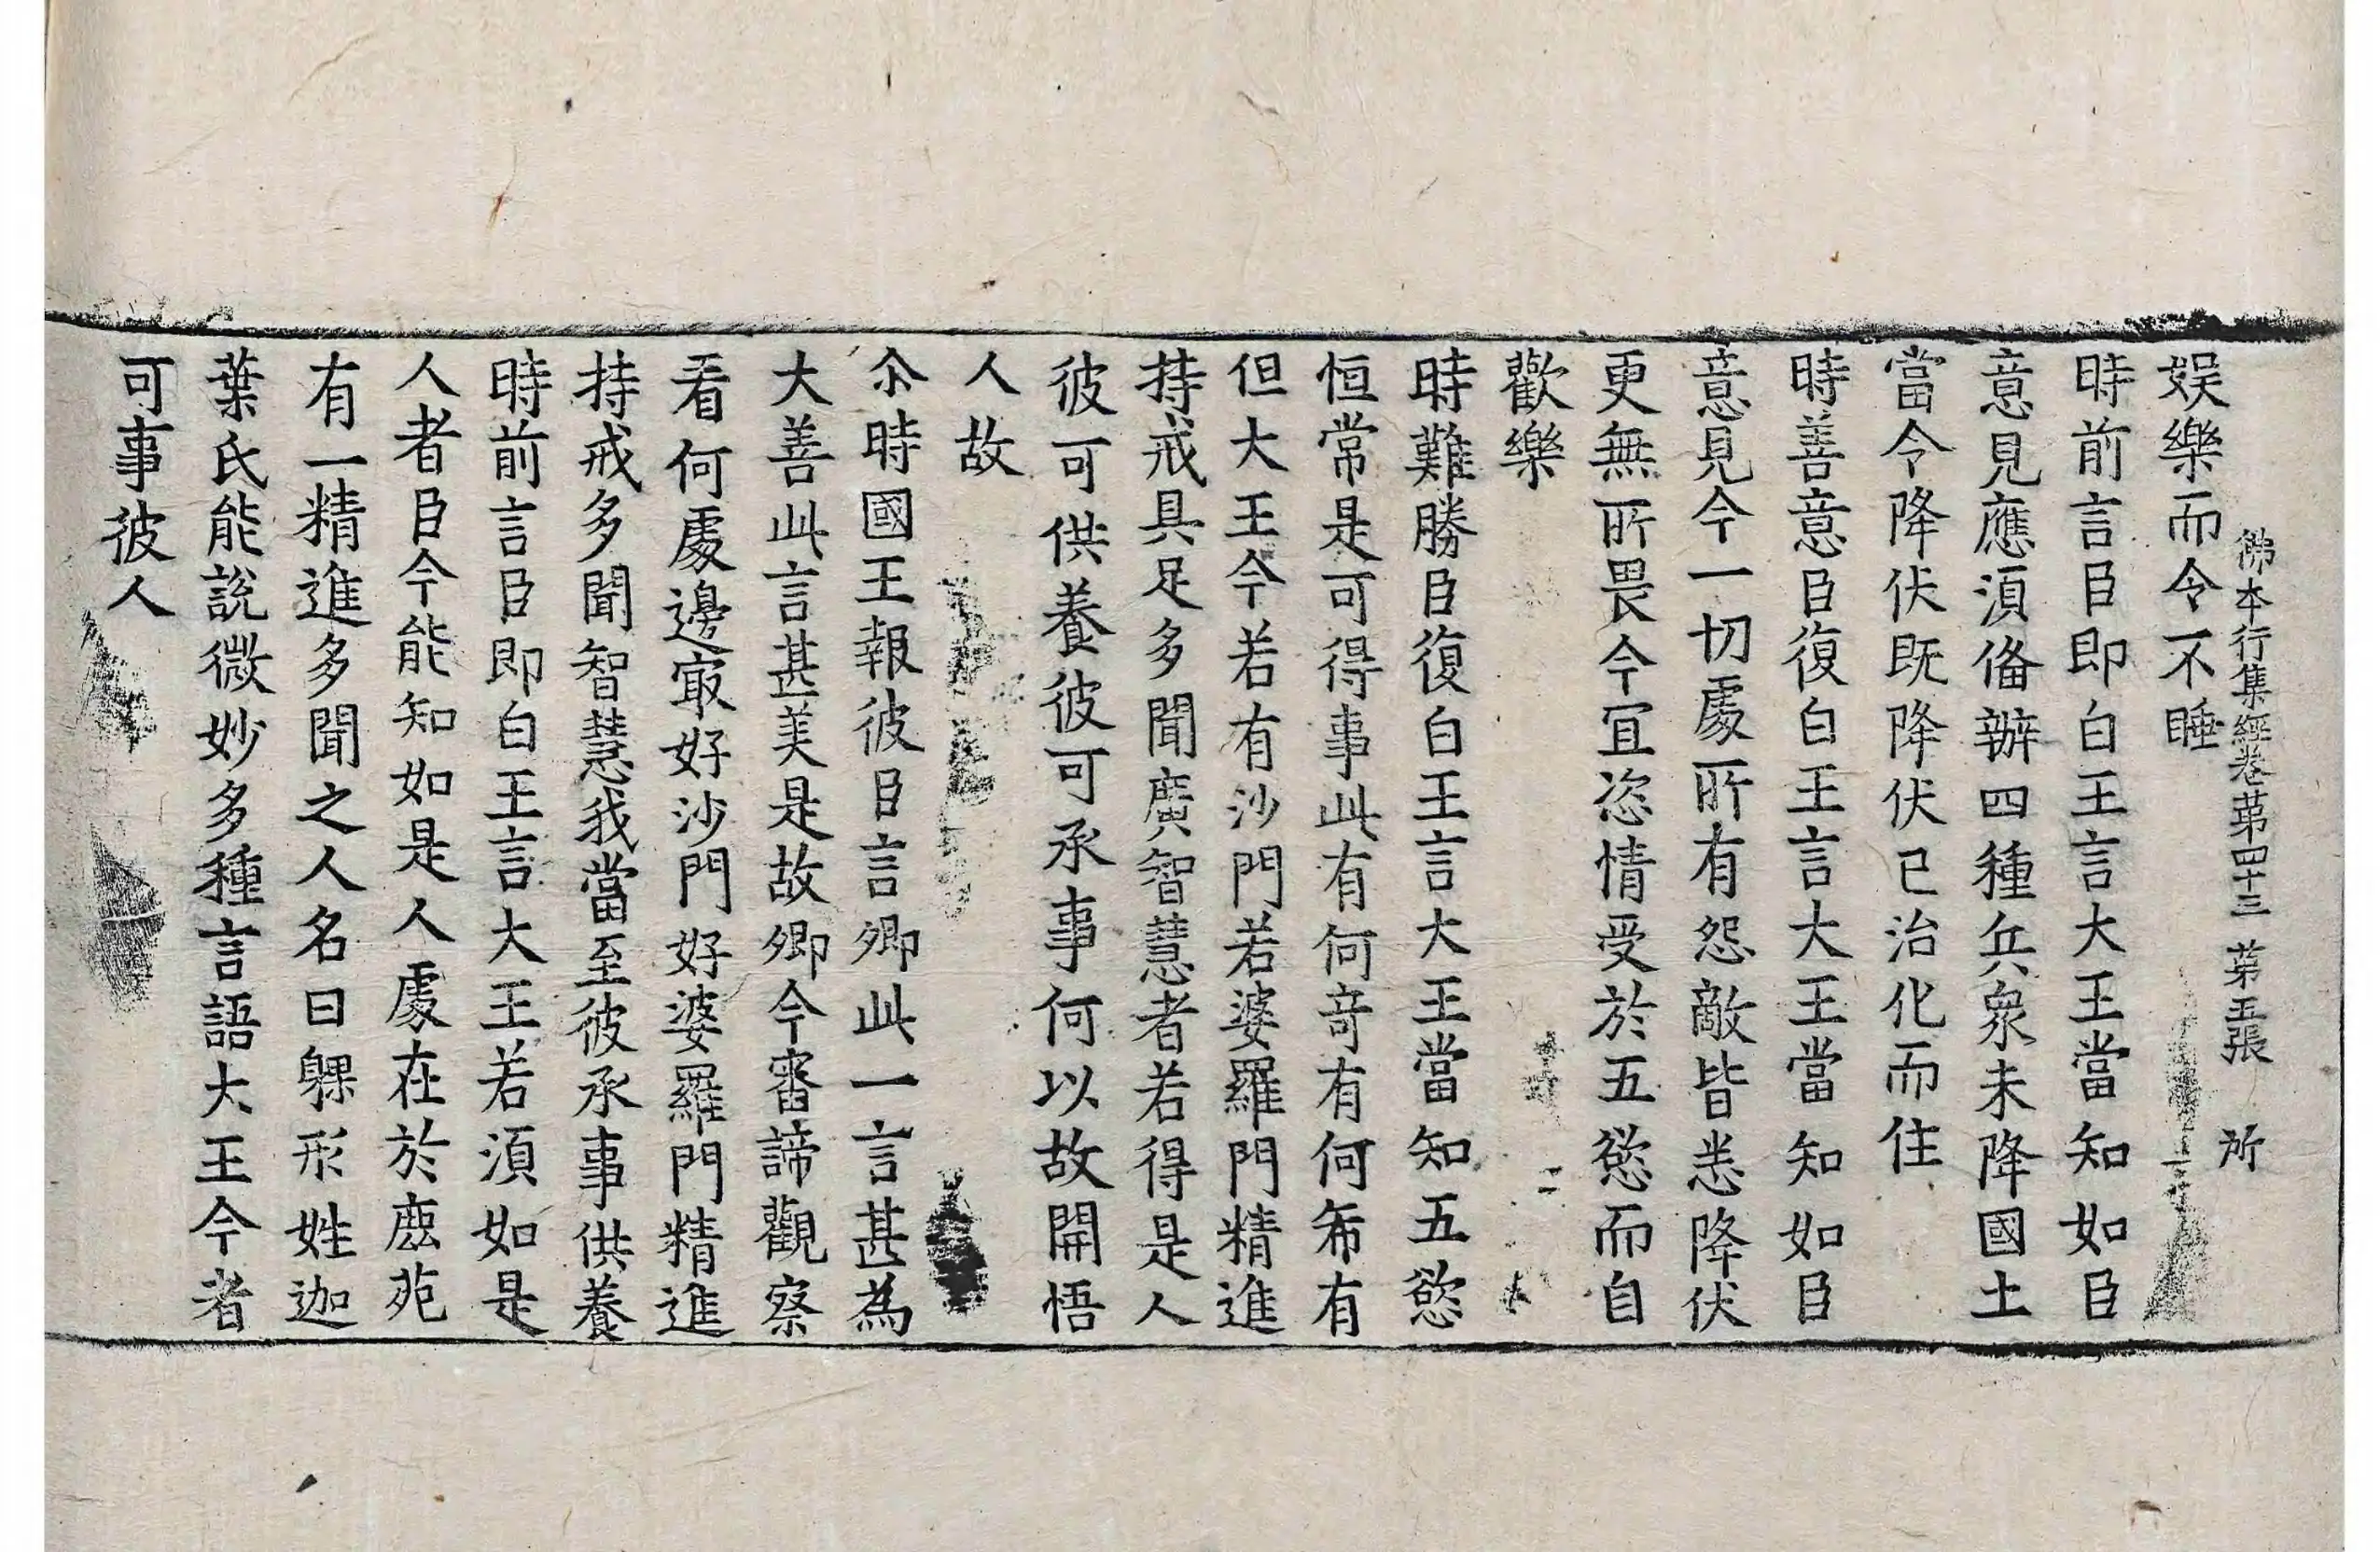 佛本行集經卷苐四十三　苐五張　所
娱樂而令不睡
時前言臣即白王言大王當知如臣
意見應湏俻辦四種兵衆未降國土
當令降伏既降伏已治化而住
時善意臣復白王言大王當知如臣
意見今一切處所有怨敵皆悉降伏
更無所畏今冝恣情受於五慾而自
歡樂
時難勝臣復白王言大王當知五慾
恒常是可得事此有何竒有何希有
但大王今若有沙門若婆羅門精進
持戒具足多聞廣智慧者若得是人
彼可供養彼可承事何以故開悟
人故
尒時國王報彼臣言卿此一言甚為
大善此言甚美是故卿今審諦觀察
看何處邊冣好沙門好婆羅門精進
持戒多聞智慧我當至彼承事供養
時前言臣即白王言大王若湏如是
人者臣今能知如是人處在於鹿苑
有一精進多聞之人名曰躶形姓迦
葉氏能說微妙多種言語大王今者
可事彼人